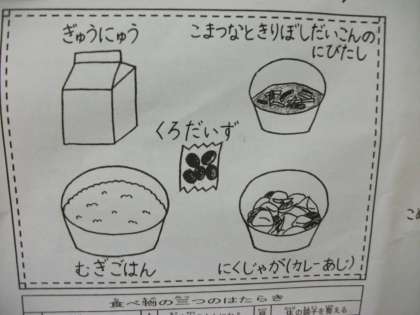 ぎゅうにゅう
こまつなときりぼしだいこんの
にびたし
くろだいず
むぎごはん
にくじゃが(カレーあじ)
食べ物の三つのはたらき